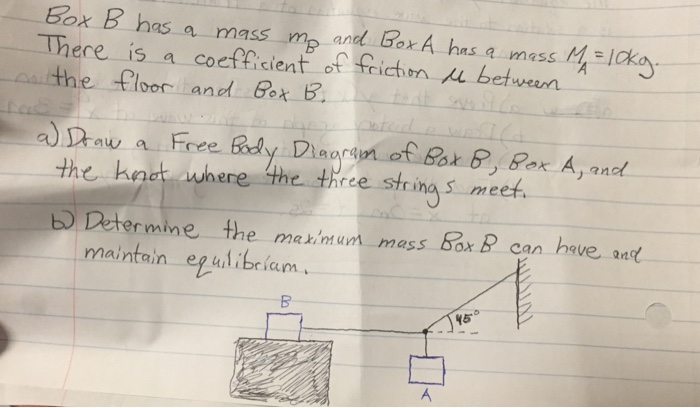 Box B has a mass m_B and Box A has a mass M_A = 10kg.
There is a coefficient of friction μ between
the floor and Box B.
a) Draw a Free Body Diagram of Box B, Box A, and
the knot where the three strings meet.
b) Determine the maximum mass Box B can have and
maintain equilibriam.
B
45°
A